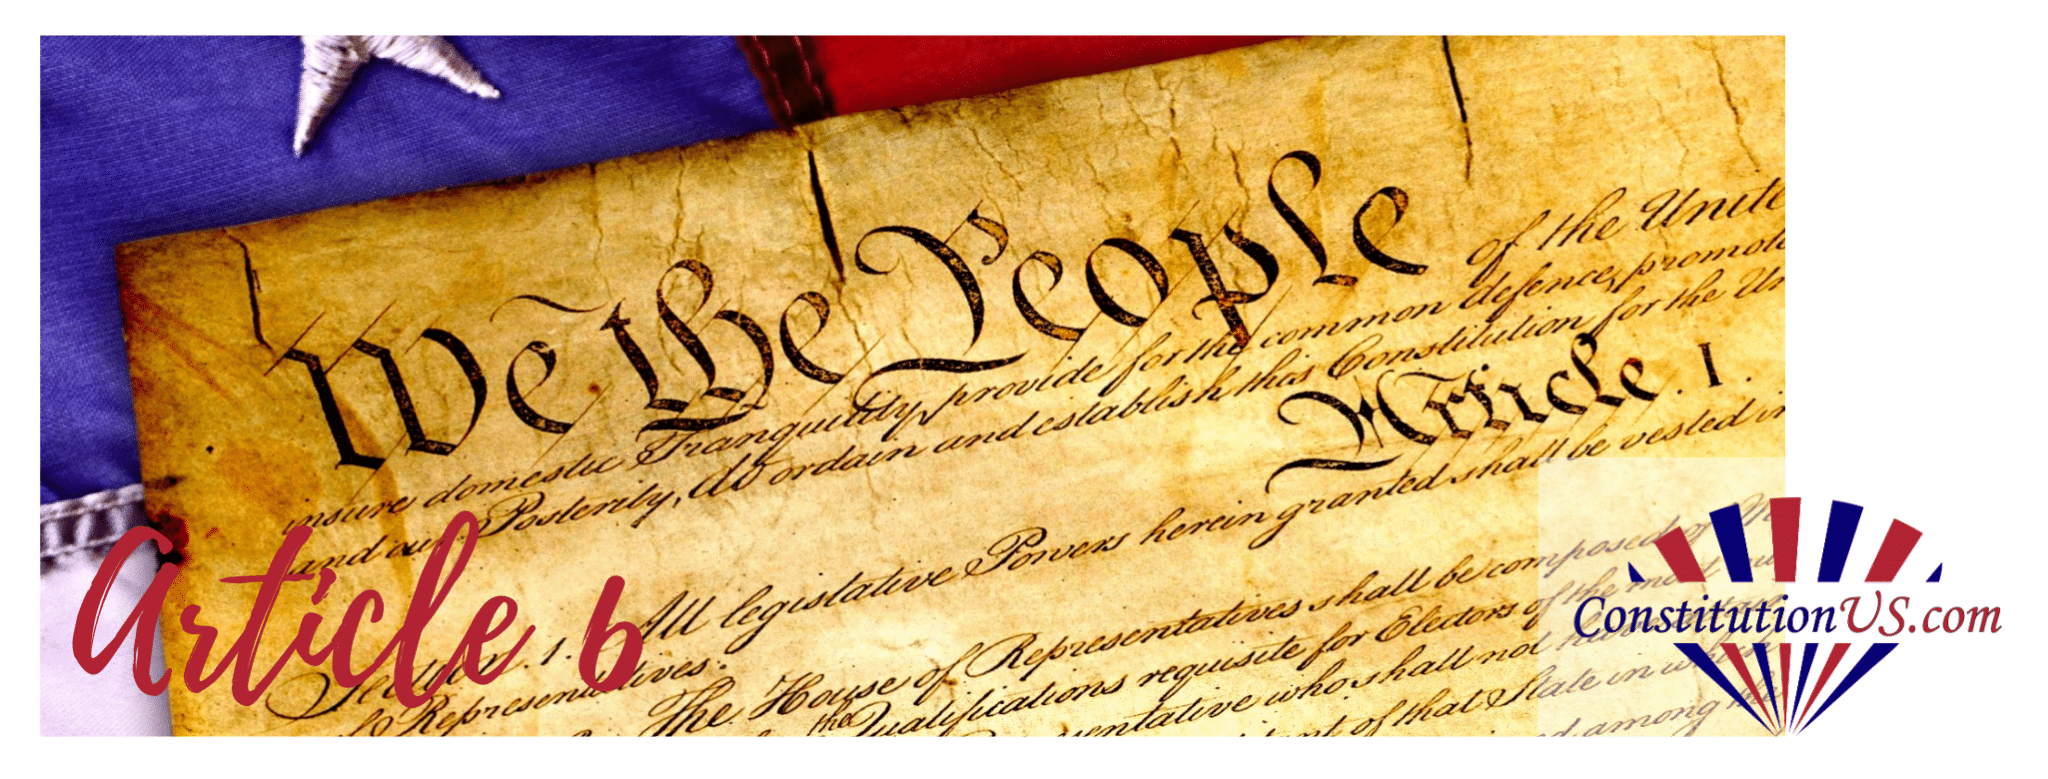 We the People
of the Unite
insure domestic Tranquility, provide for the common defence, promote
and our Posterity, do ordain and establish this Constitution for the Un
Article . 1 .
Section . 1 . All legislative Powers herein granted shall be vested in
of Representatives.
The House of Representatives shall be composed of
the
Qualifications requisite for Electors of the most
who shall not
of that State in
among the
Article 6
ConstitutionUS.com